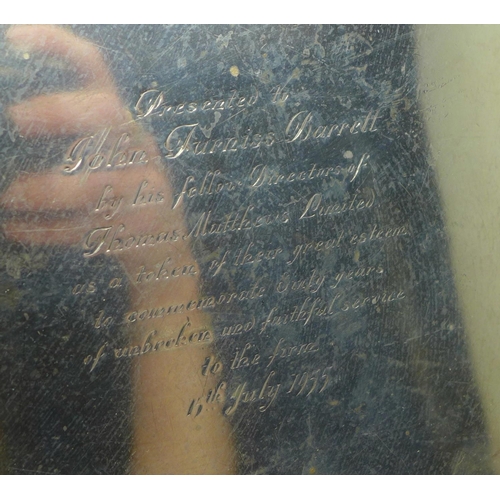 Presented to
John Furniss Barrett
by his fellow Directors of
Thomas Matthews Limited
as a token of their great esteem
to commemorate years
of unbocken and faithful service
to the firm
July 1955